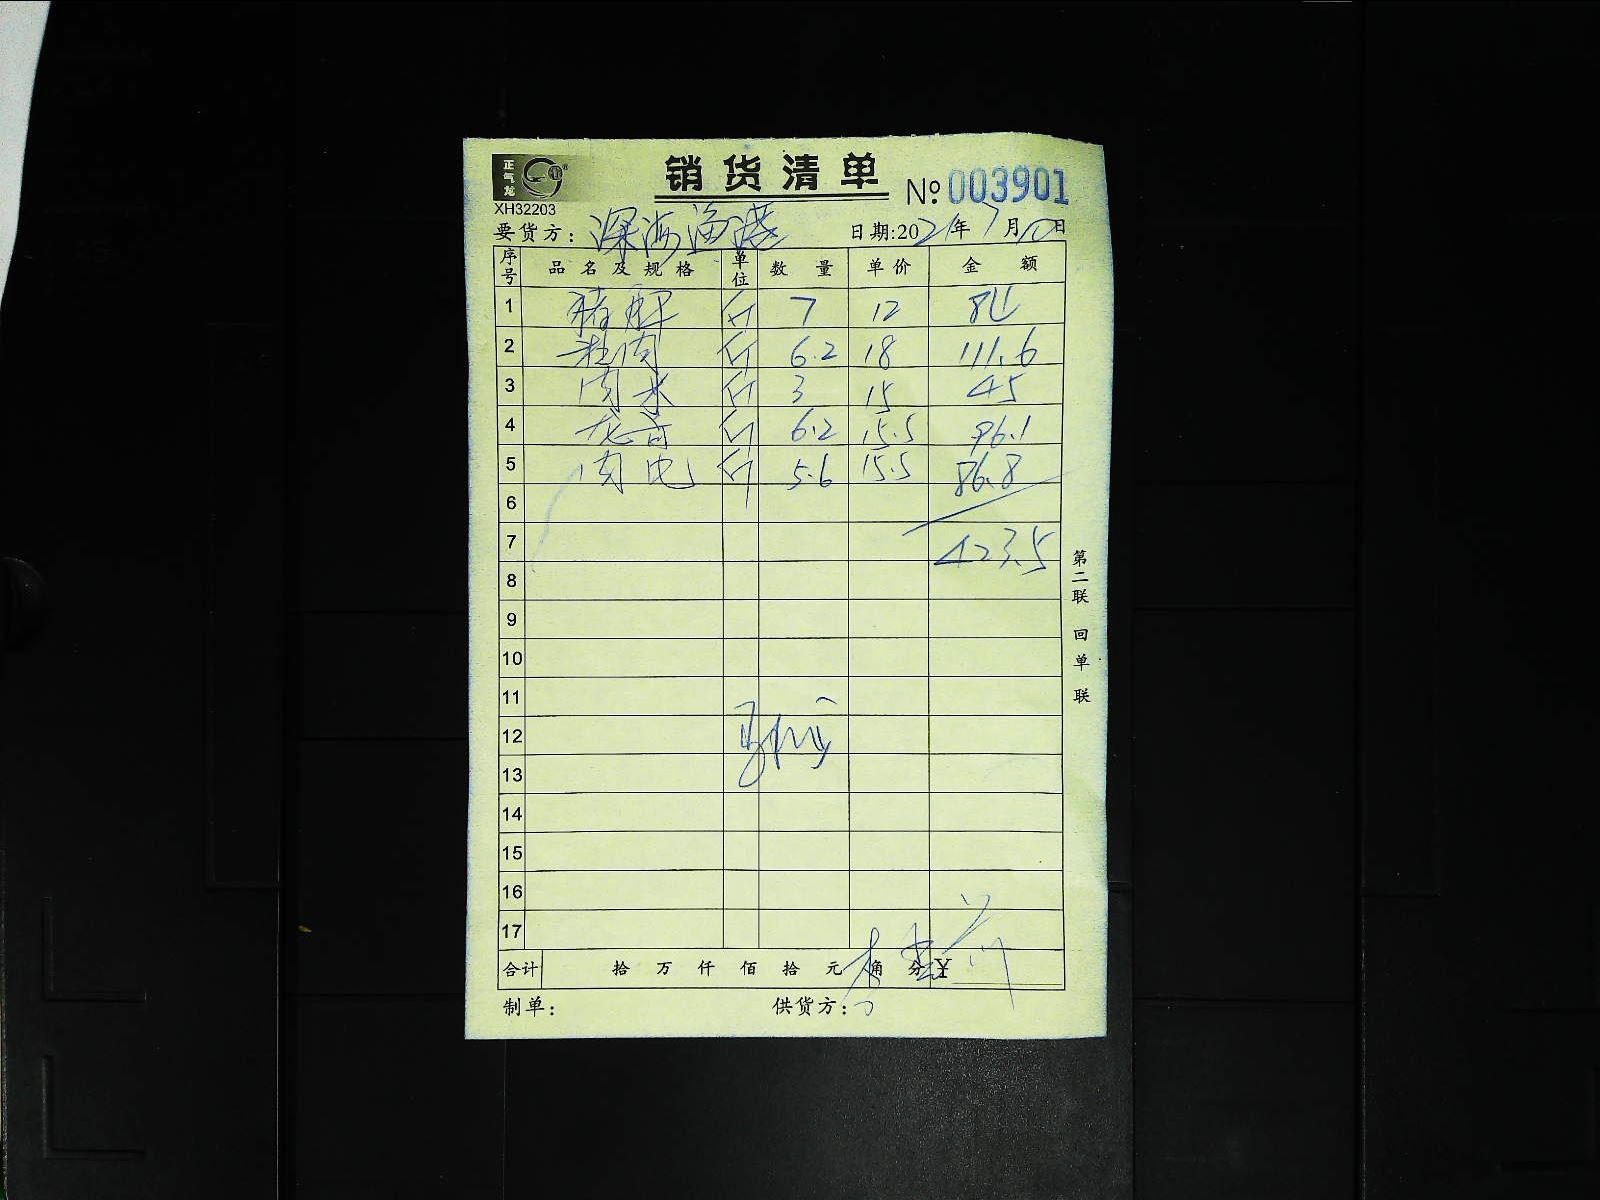 正气龙
销货清单
XH32203
№ 003901
要货方: 深海渔港 日期:2021年7月10日
序号 品名及规格 单位 数量 单价 金额
1 猪肝 斤 7 12 84
2 肉 斤 6.2 18 111.6
3 肉 斤 3 15 45
4 龙骨 斤 6.2 15.5 96.1
5 肉 斤 5.6 15.5 86.8
6
7 423.5
8
9
10
11
12
13
14
15
16
17
合计 拾 万 仟 佰 拾 元 角 分 ¥
制单: 供货方:
第二联 回单联